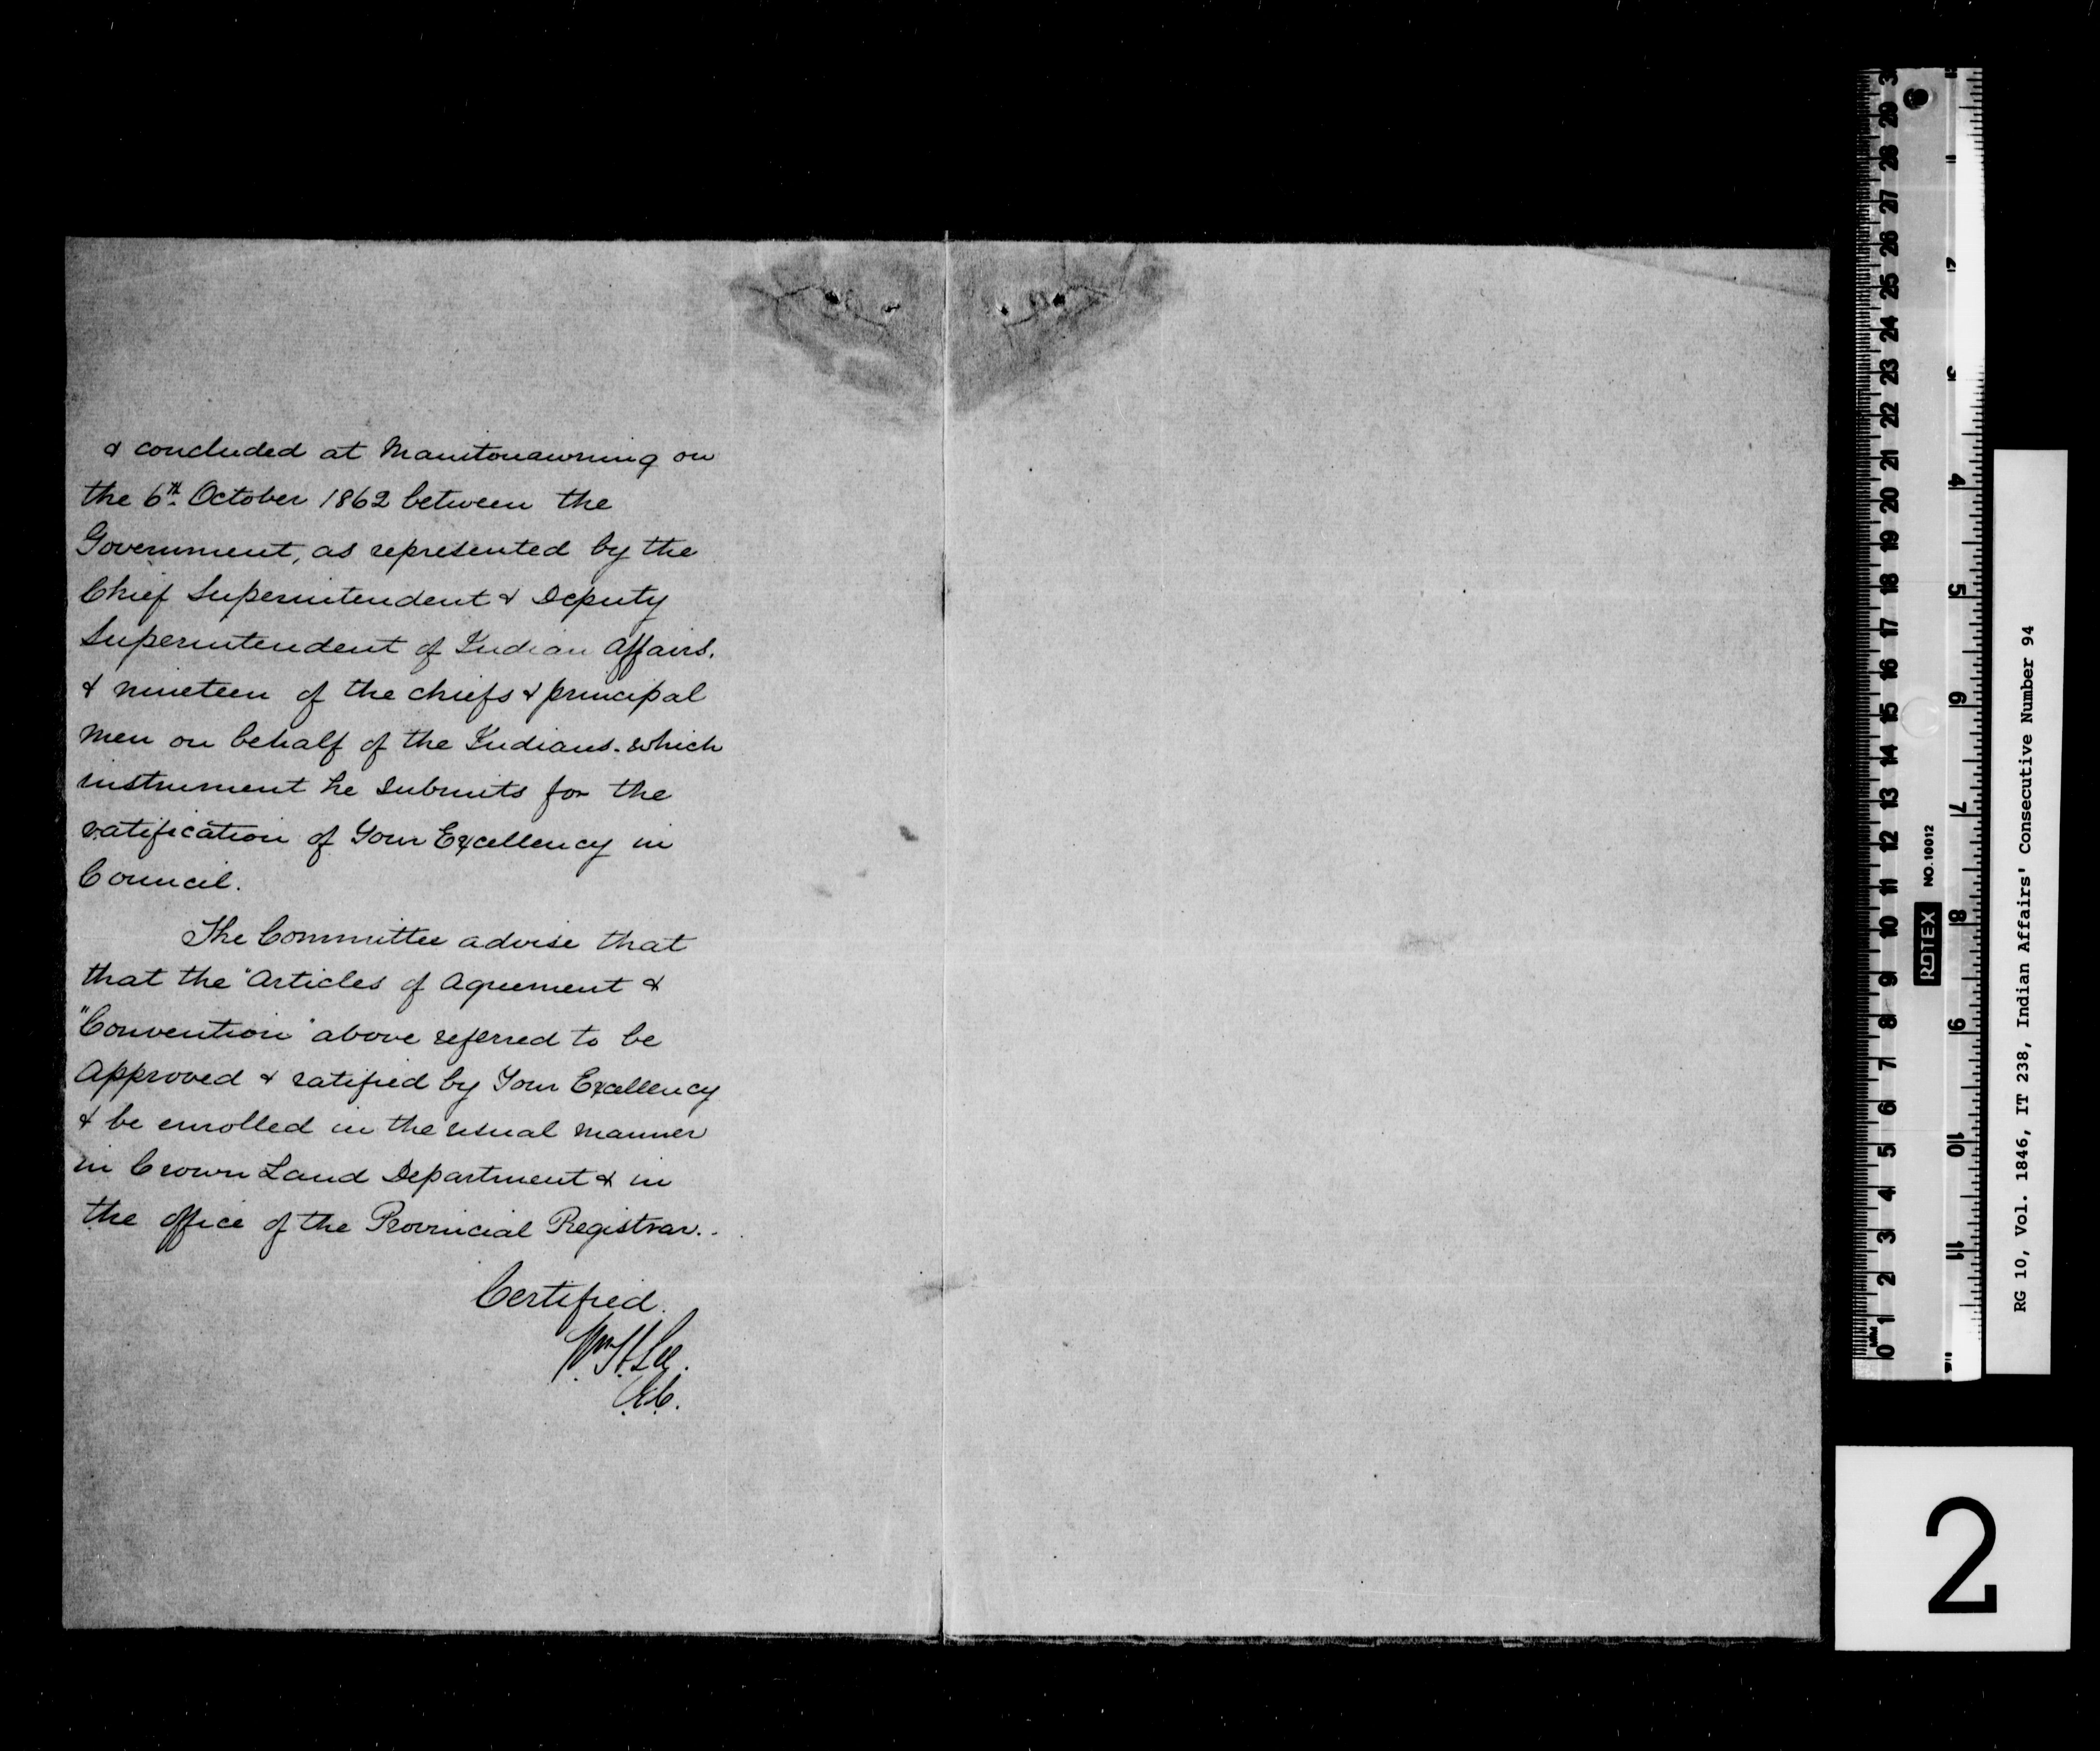 & concluded at Manitouawning on
the 6th October 1862 between the
Government, as represented by the
Chief Superintendent & Deputy
Superintendent of Indian Affairs.
& nineteen of the chiefs & principal
Men on behalf of the Indians. which
instrument he submits for the
ratification of Your Excellency in
Council.
The Committee advise that
that the "Articles of Agreement &
"Convention" above referred to be
Approved & ratified by Your Excellency
& be enrolled in the usual manner
in Crown Land Department & in
the office of the Provincial Registrar.
Certified.
Wm H Lee.
C.E.C.
RG 10, Vol. 1846, IT 238, Indian Affairs' Consecutive Number 94
ROTEX NO.10012
3 29 28 27 26 25 24 23 22 21 20 19 18 17 16 15 14 13 12 11 10 9 8 7 6 5 4 3 2 1 0
1 2 3 4 5 6 7 8 9 10 11
2